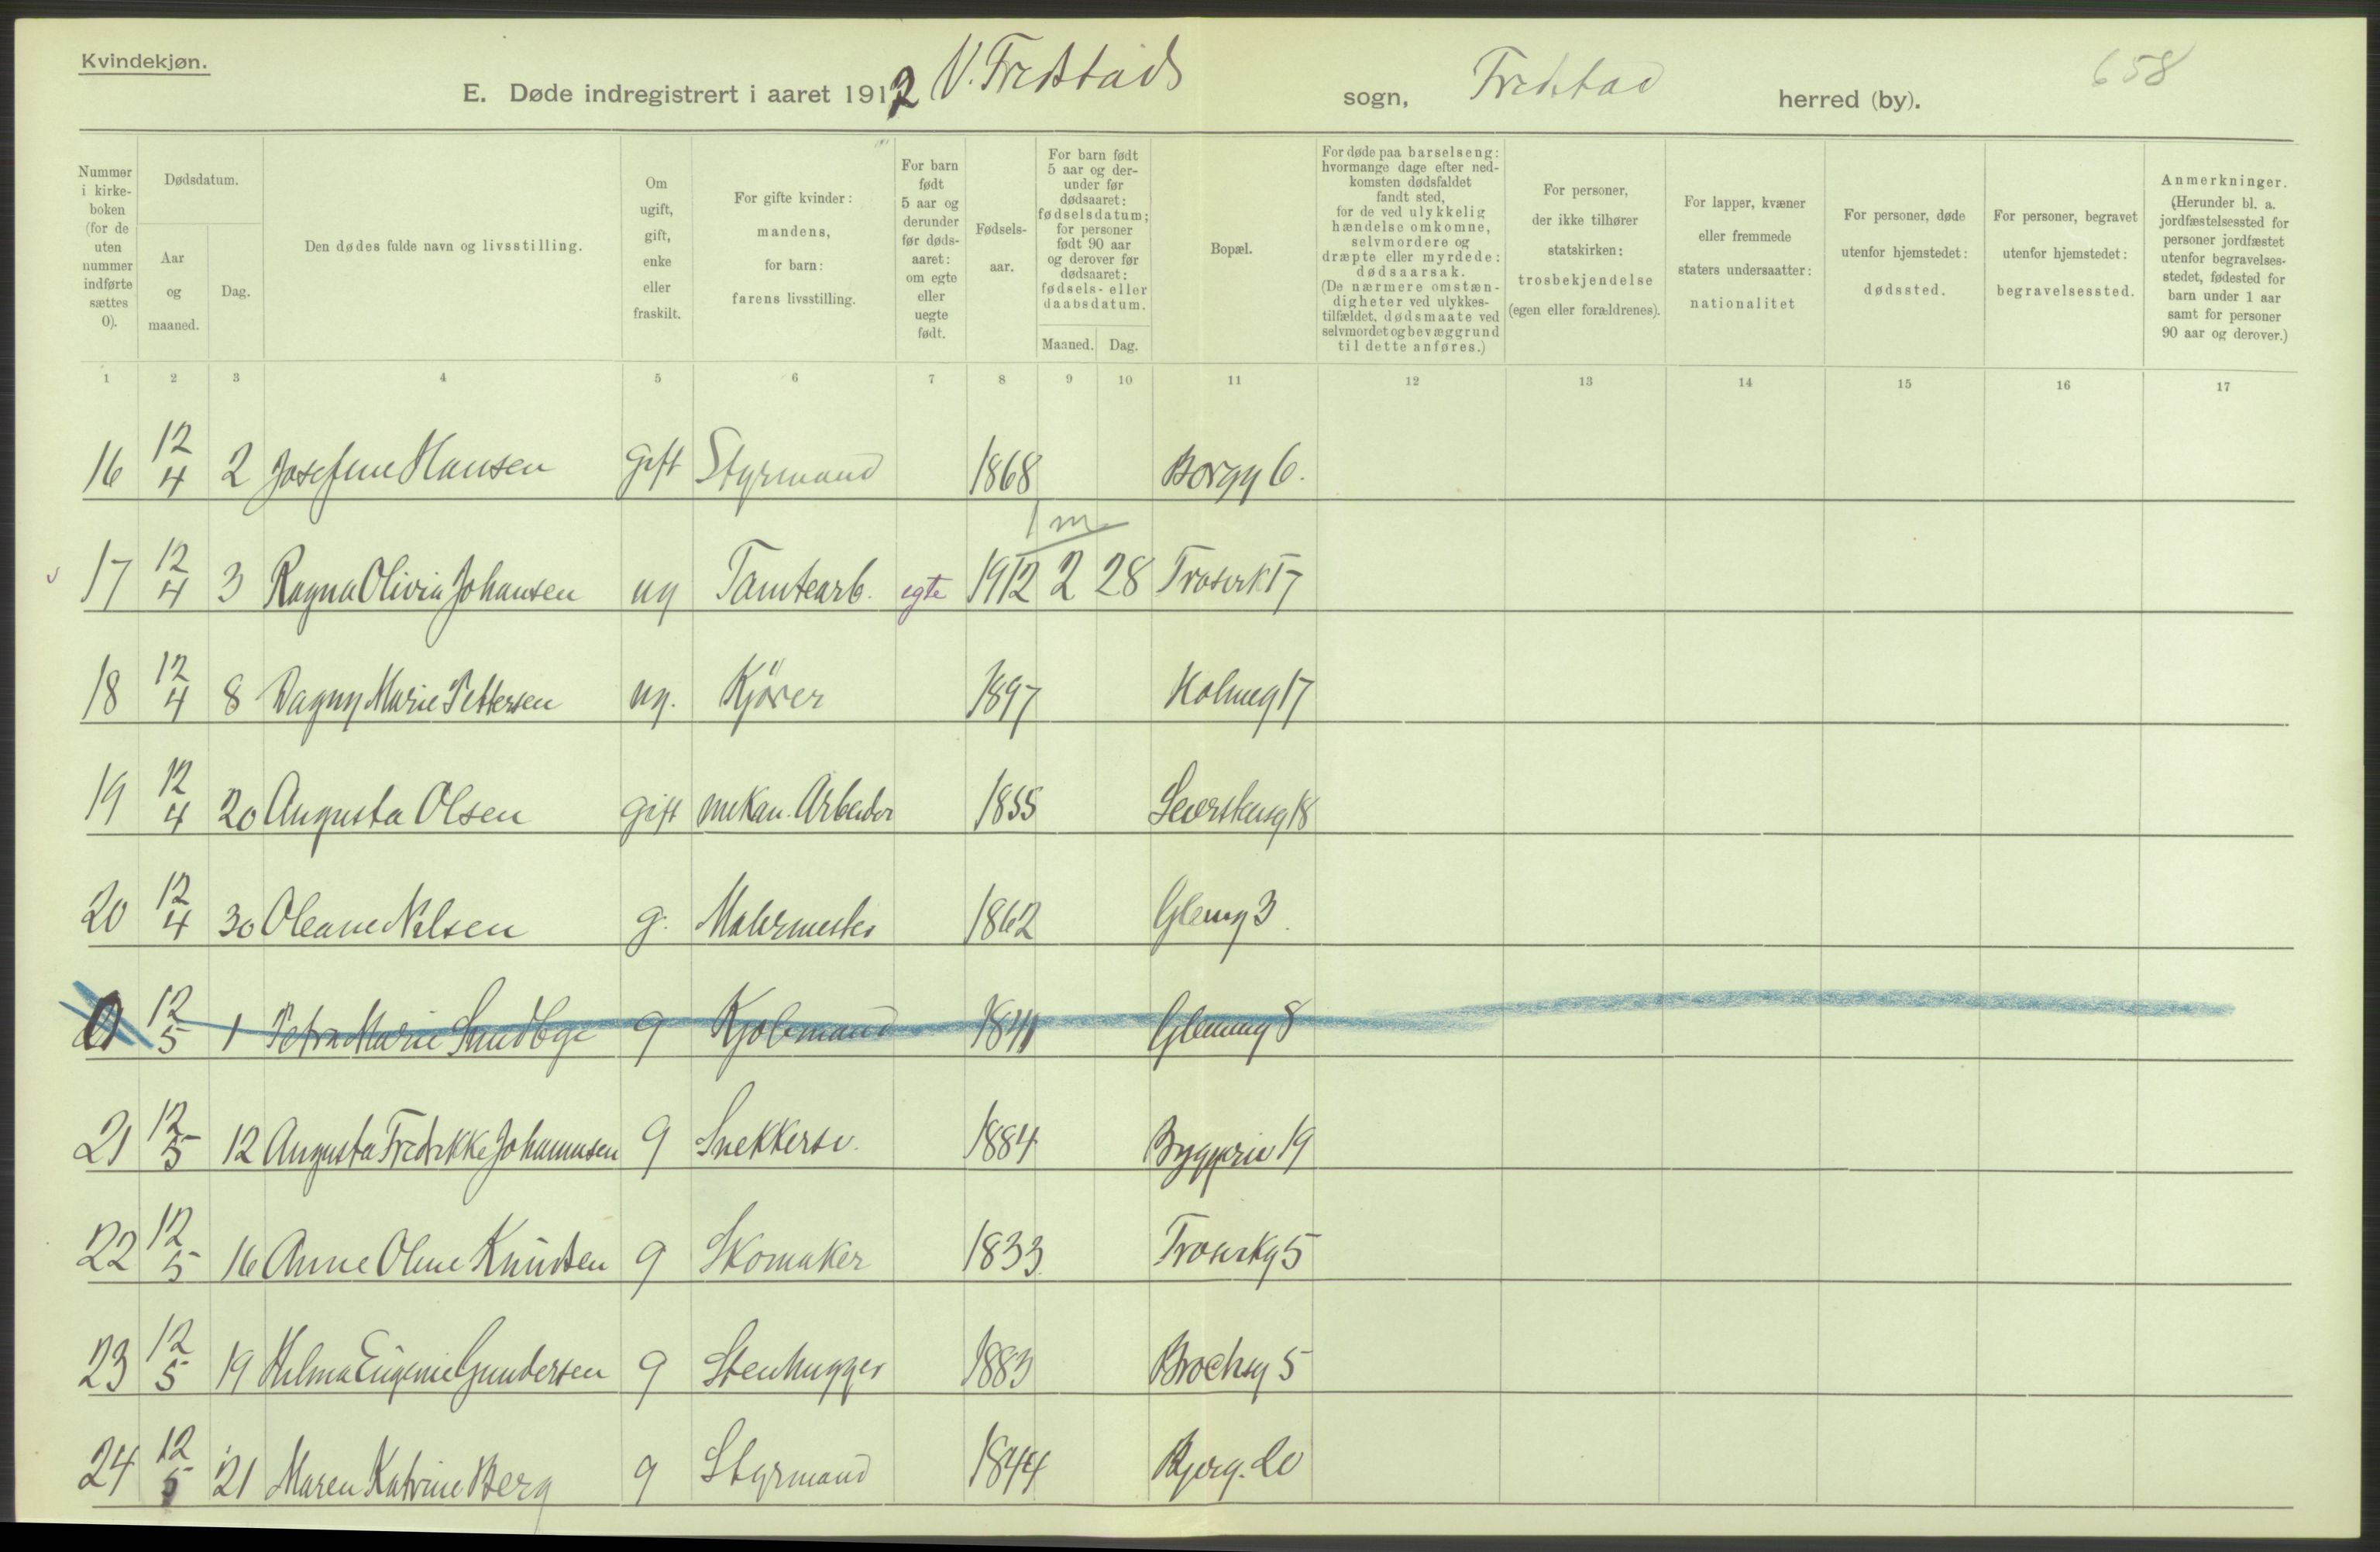 Kvindekjøn.
E. Døde indregistrert i aaret 1912 V. Fredstads sogn, Fredstad herred (by).
658
Nummer i kirke- boken (for de uten nummer indførte sættes 0).
Dødsdatum.
Aar og maaned.
Dag.
Den dødes fulde navn og livsstilling.
Om ugift, gift, enke eller fraskilt.
For gifte kvinder: mandens, for barn: farens livsstilling.
For barn født 5 aar og derunder før døds- aaret: om egte eller uegte født.
Fødsels- aar.
For barn født 5 aar og der- under før dødsaaret: fødselsdatum; for personer født 90 aar og derover før dødsaaret: fødsels- eller daabsdatum.
Maaned.
Dag.
Bopæl.
For døde paa barselseng: hvormange dage efter ned- komsten dødsfaldet fandt sted, for de ved ulykkelig hændelse omkomne, selvmordere og dræpte eller myrdede: dødsaarsak. (De nærmere omstæn- digheter ved ulykkes- tilfældet, dødsmaate ved selvmordet og bevæggrund til dette anføres.)
For personer, der ikke tilhører statskirken: trosbekjendelse (egen eller forældrenes).
For lapper, kvæner eller fremmede staters undersaatter: nationalitet
For personer, døde utenfor hjemstedet: dødssted.
For personer, begravet utenfor hjemstedet: begravelsessted.
Anmerkninger. (Herunder bl. a. jordfæstelsessted for personer jordfæstet utenfor begravelses- stedet, fødested for barn under 1 aar samt for personer 90 aar og derover.)
1 2 3 4 5 6 7 8 9 10 11 12 13 14 15 16 17
16 12 4 2 Josefine Hansen gift Styrmand 1868 Borgg 6.
1 m
17 12 4 3 Ragna Olivia Johansen ug Tomtearb. egte 1912 2 28 Trosvik 17
18 12 4 8 Dagny Marie Pettersen ug. Kjörer 1897 Holmeg 17
19 12 4 20 Augusta Olsen gift mekan. Arbeider 1855 18
20 12 4 30 Oleane Nilsen g. Malermester 1862 Glemg 3
0 12 5 1 Petra Marie g Kjøbmand 1841 Glemmg 8
21 12 5 12 Augusta Fredrikke Johannesen g Snekkersv. 1884 Byggeriv 19
22 12 5 16 Anne Oline Knudsen g Skomaker 1833 Trosvikg 5
23 12 5 19 Hilma Eugenie Gundersen g Stenhugger 1883 Brochsg 5
24 12 5 21 Maren Katrine Berg g Styrmand 1844 20